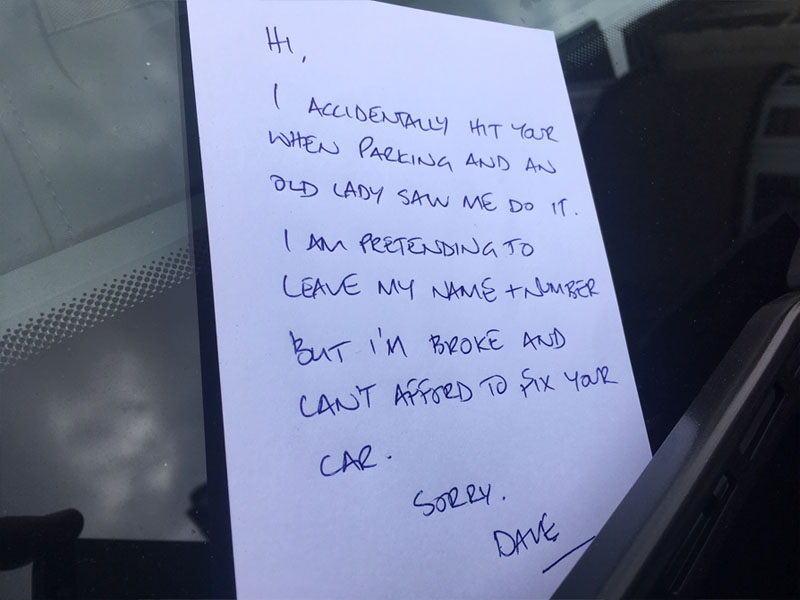 HI,
I ACCIDENTALLY HIT YOUR
WHEN PARKING AND AN
OLD LADY SAW ME DO IT.
I AM PRETENDING TO
LEAVE MY NAME + NUMBER
BUT I'M BROKE AND
CAN'T AFFORD TO FIX YOUR
CAR.
SORRY.
DAVE